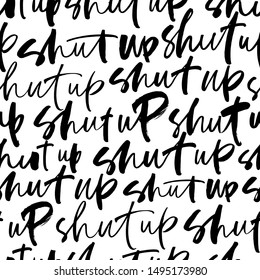 ut up shut up
shut up shut up
shut uP shut
shut up shut up
shut up shut up s
uP shut up shut
shut up shut up
www.shutterstock.com · 1495173980